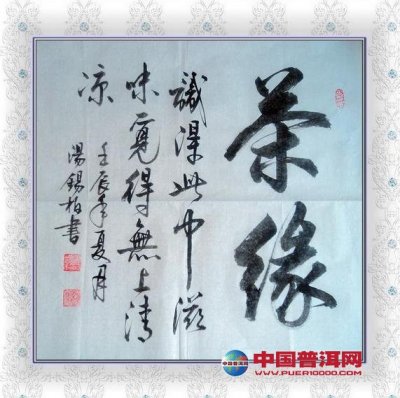 茶缘
識得此中滋
味覓得無上清
凉
壬辰年夏月
湯錫柏書
中国普洱网
WWW.PUER10000.COM